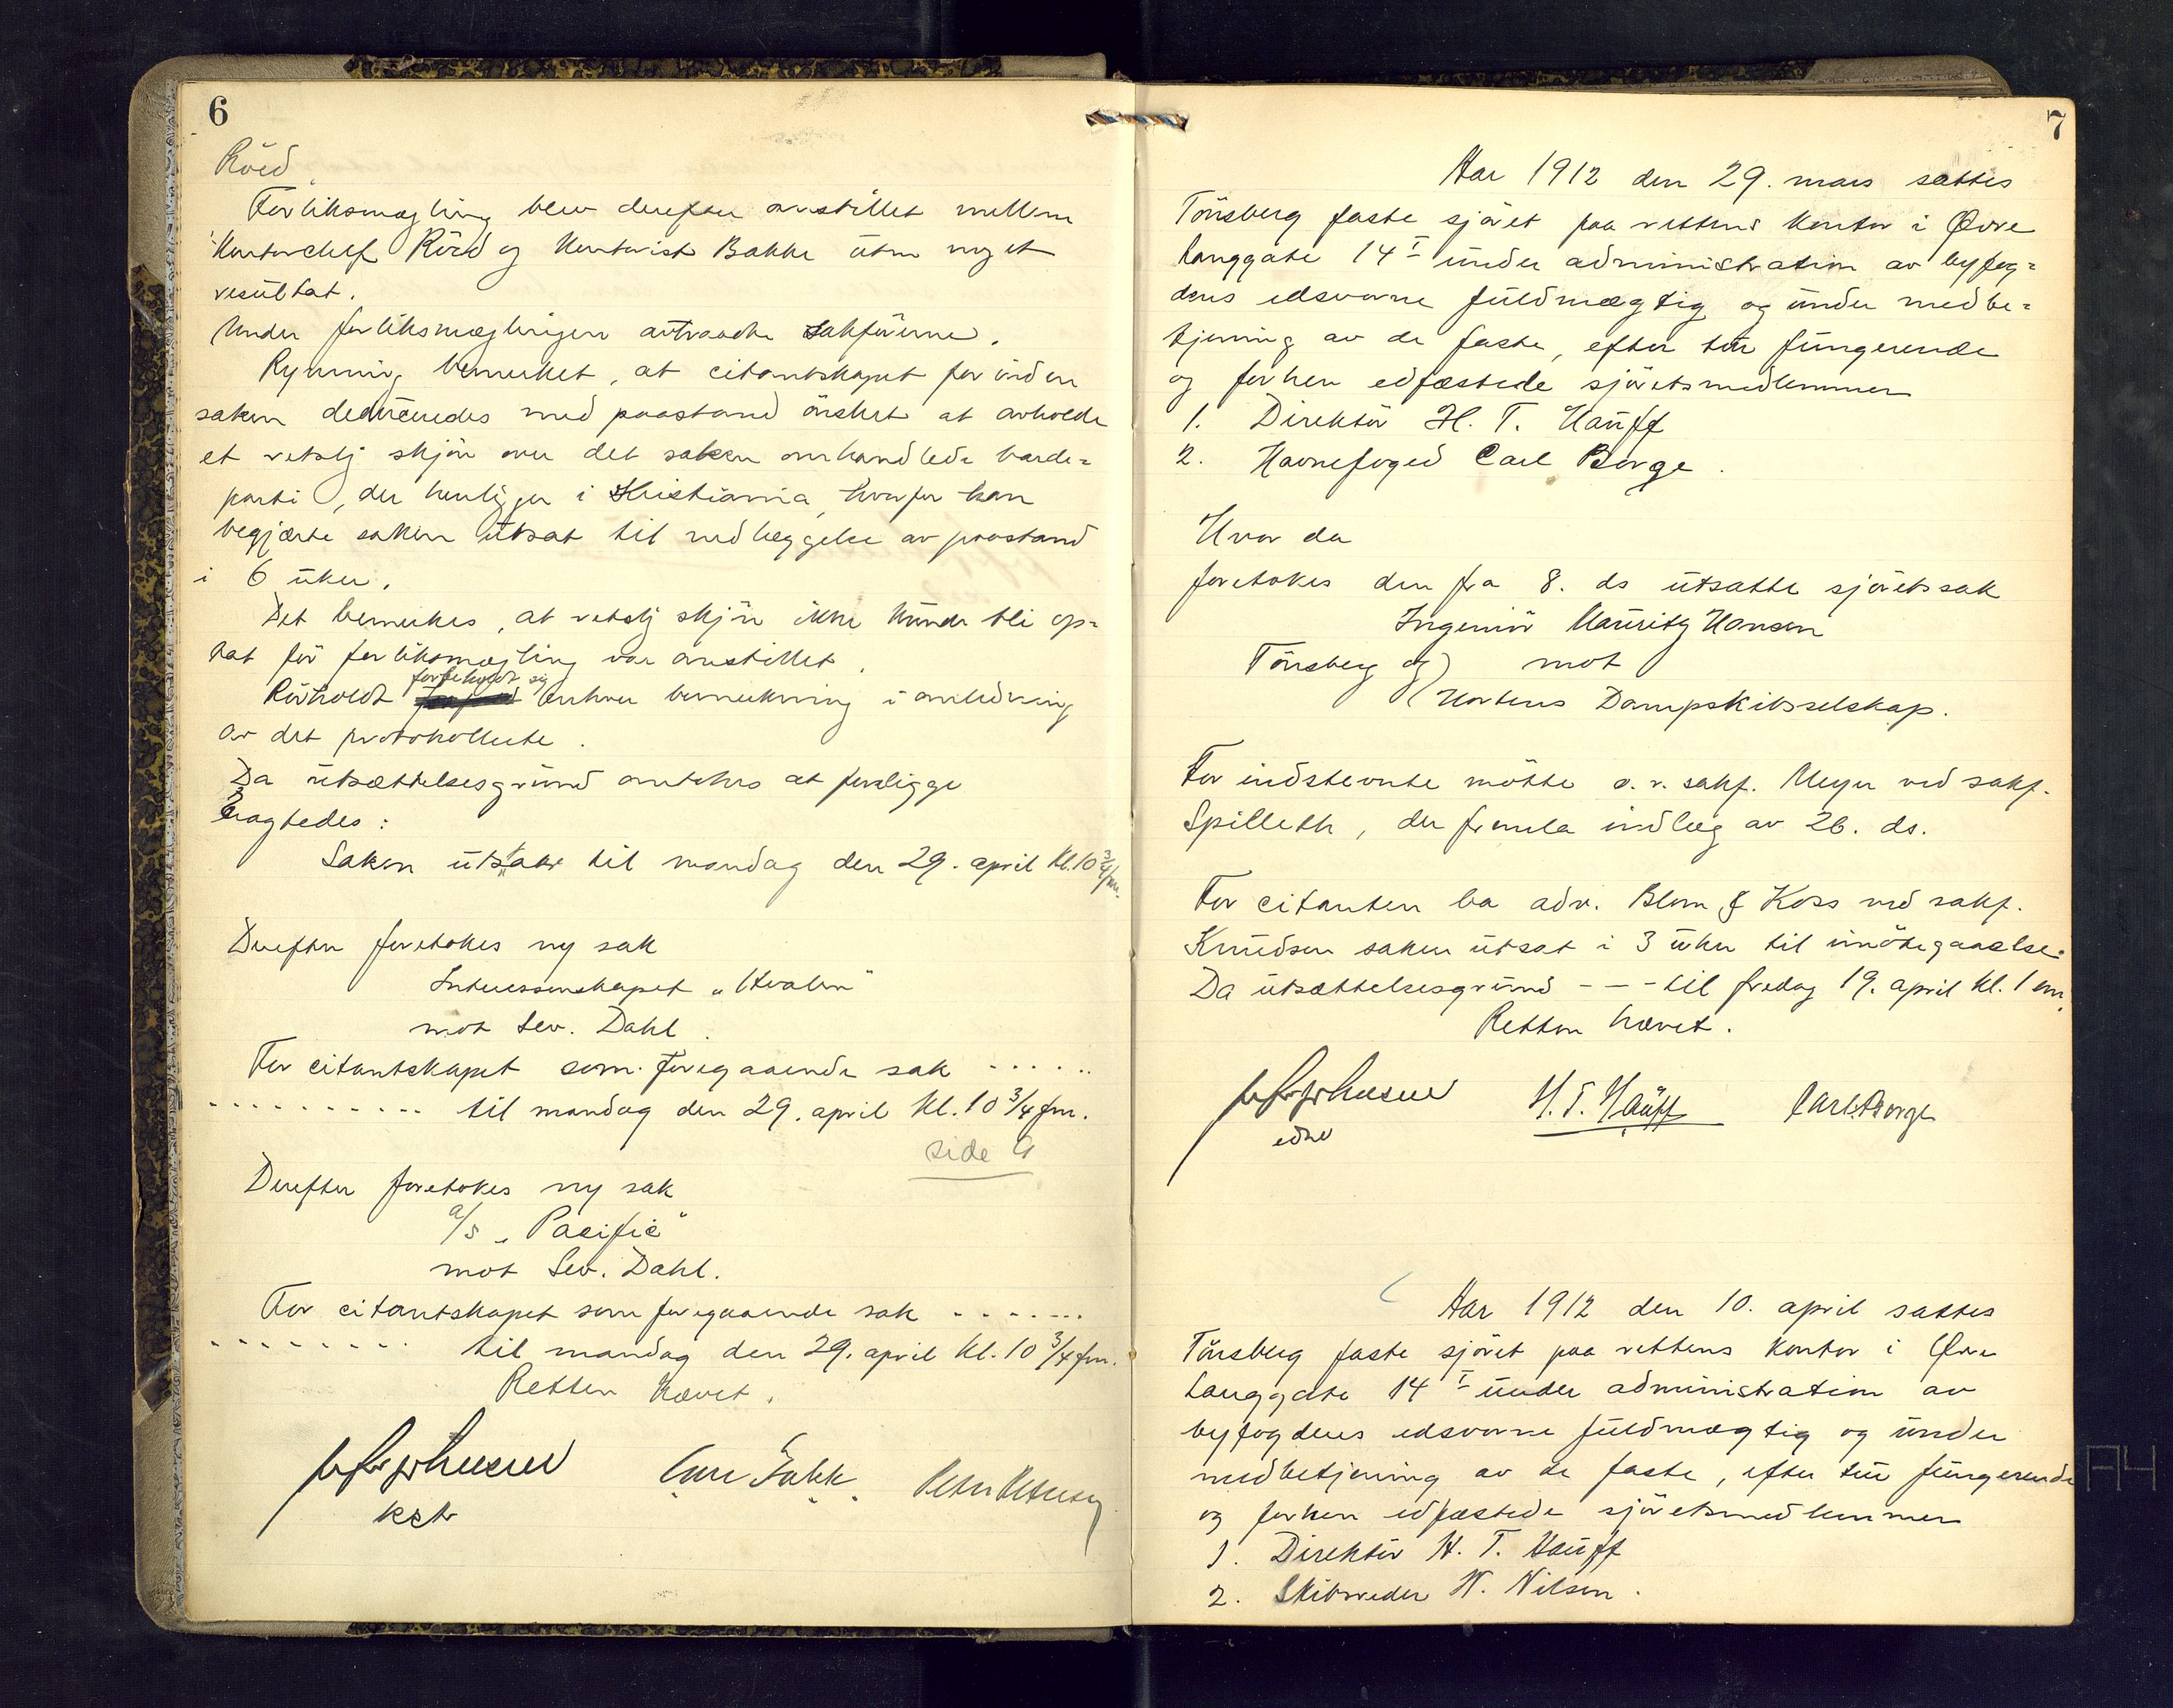 6
Röed
Forliksmægling blev derefter anstillet mellem
Kontorchef Röed og Kontorist Bakke uten noget
resultat.
Under forliksmæglingen avtraadte sakförerne.
Rynning bemerket, at citantskapet forinden
saken deduceredes med paastand önsket at avholde
et retslj skjön over det saken omhandlede barde=
parti, der henligger i Kristiania, hvorfor han
begjærte saken utsat til nedlæggelse av paastand
i 6 uker.
Det bemerkes, at retslj skjön ikke kunde bli op=
tat för forliksmægling var anstillet.
Rörholdt forbeholdt sig enhver bemerkning i anledning
av det protokollerte.
Da utsættelsesgrund antokes at foreligge
eragtedes:
Saken utsættes til mandag den 29. april kl. 10 3/4 fm.
Derefter foretokes ny sak
Interessenskapet "Hvalen"
mot Sev. Dahl.
For citantskapet som foregaaende sak ......
........... til mandag den 29. april kl. 10 3/4 fm.
side 9
Derefter foretokes ny sak
a/s "Pacific"
mot Sev. Dahl.
For citantskapet som foregaaende sak .......
......... til mandag den 29. april kl. 10 3/4 fm.
Retten hævet.
kst
7
Aar 1912 den 29. mars sattes
Tönsberg faste sjöret paa rettens kontor i Övre
Langgate 14 I under administration av byfog=
dens edsvorne fuldmægtig og under medbe=
tjening av de faste, efter tur fungerende
og forhen edfæstede sjöretsmedlemmer
1. Direktör H. T. Hauff
2. Havnefoged Carl Borge.
Hvor da
foretokes den fra 8. ds utsatte sjöretssak
Ingeniör Mauritz Hansen
Tönsberg og) mot
(Hortens Dampskibsselskap.
For indstevnte mötte o.r. sakf. Meyer ved sakf.
Spilleth, der fremla indlæg av 26. ds.
For citanten ba adv. Blom & Koss ved sakf.
Knudsen saken utsat i 3 uker til imötegaaelse.
Da utsættelsesgrund - - - til fredag 19. april kl. 1 em.
Retten hævet.
H. T. Hauff Carl Borge
edsv
Aar 1912 den 10. april sattes
Tönsberg faste sjöret paa rettens kontor i Övre
Langgate 14 I under administration av
byfogdens edsvorne fuldmægtig og under
medbetjening av de faste, efter tur fungerende
og forhen edfæstede sjöretsmedlemmer
1. Direktör H. T. Hauff
2. Skibsreder W. Nilsen.